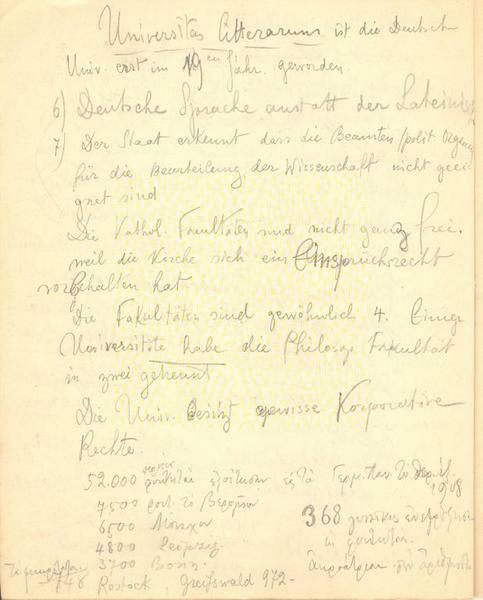 Universitas litterarum ist die Deutsche
Univ. erst im 19en Jahr. geworden.
6) Deutsche Sprache anstatt der Lateinisch
7) Der Staat erkennt dass die Beamten/polit. Organe
für die Beurteilung der Wissenschaft nicht geei
gnet sind
Die Kathol. Facultäten sind nicht ganz frei.
weil die Kirche sich ein Einspruchsrecht
vorbehalten hat.
Die Fakultäten sind gewöhnlich 4. Einige
Universitäte habe die Philosop Fakultät
in zwei getrennt
Die Univ. besitzt gewisse Korporative
Rechte.
52.000 φοιτηταί εἰς τὰ Γερμ. Παν. τὸ 1908
7500 φοιτ. τὸ Βερολῖνο
6500 Μοναχο
4800 Leipzig
3700 Bonn.
368 γυναῖκες
ὡς φοιτηταί.
Rostock, Greifswald 972-